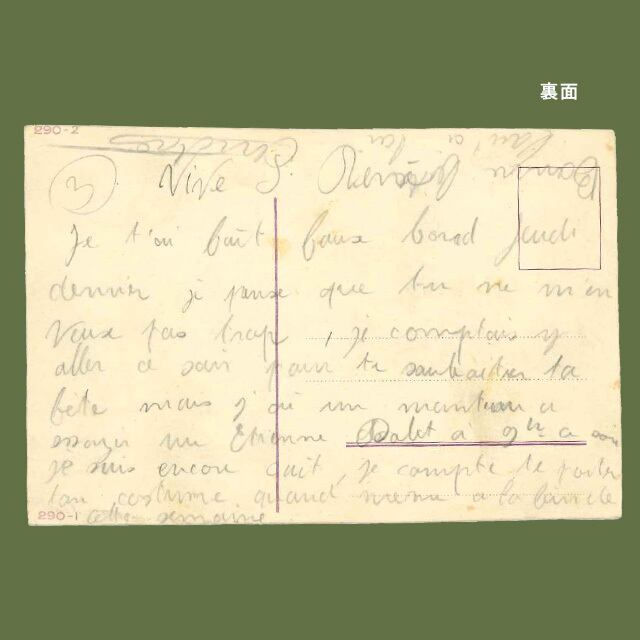 裏面
290-2
3 Vive S. Pierre
Je t'ai fait faux bond jeudi
dernier je pense que tu ne m'en
veux pas trop, je comptais y
aller ce soir pour te souhaiter ta
fête mais j'ai un manteau a
essayer un Etienne à 9h a
je suis encore je compte te porter
ton costume quand meme a la
290-1 cette semaine